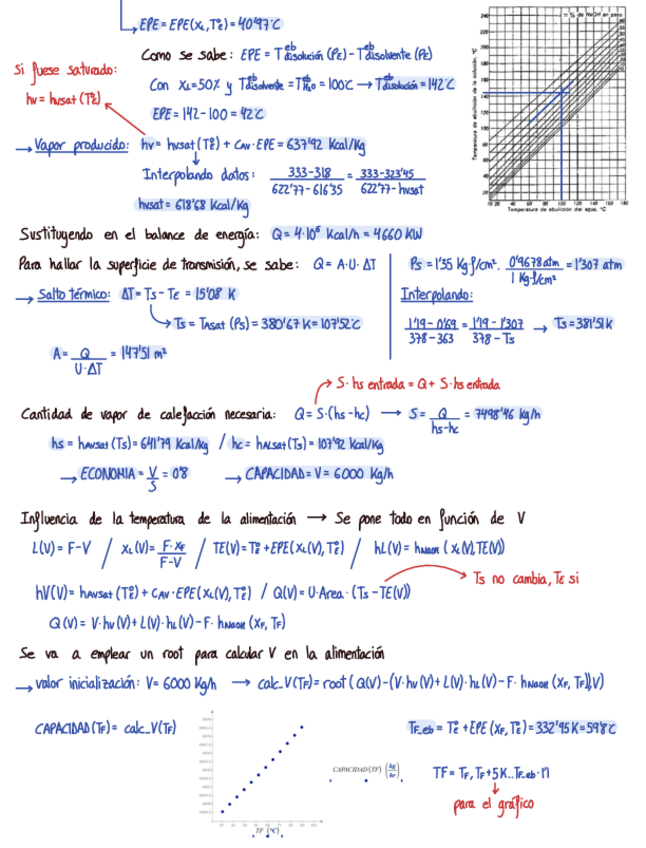 EPE = EPE(xL, Tᴱ°) = 40'97°C
Como se sabe: EPE = Tᵉᵇdisolución (PE) - Tᵉᵇdisolvente (PE)
Si fuese saturado:
hv = hvsat (Tᴱ°)
Con xL = 50% y Tᵉᵇdisolvente = TᵉᵇH₂O = 100°C → Tᵉᵇdisolución = 142°C
EPE = 142 - 100 = 42°C
% de NaOH en peso
Temperatura de ebullición de la solución, °C
Temperatura de ebullición del agua, °C
→ Vapor producido: hv = hvsat (Tᴱ°) + CAV · EPE = 637'92 Kcal/Kg
Interpolando datos: (333 - 318)/(622'77 - 616'35) = (333 - 323'45)/(622'77 - hvsat)
hvsat = 618'68 Kcal/Kg
Sustituyendo en el balance de energía: Q = 4·10⁶ Kcal/h = 4660 KW
Para hallar la superficie de transmisión, se sabe: Q = A·U·ΔT
→ Salto térmico: ΔT = Ts - TE = 15'08 K
Ts = TAsat (Ps) = 380'67 K = 107'52°C
A = Q/(U·ΔT) = 147'51 m²
Ps = 1'35 Kg·f/cm² · 0'9678 atm/1 Kg·f/cm² = 1'307 atm
Interpolando:
(1'19 - 0'69)/(378 - 363) = (1'19 - 1'307)/(378 - Ts) → Ts = 381'51 K
S·hs entrada = Q + S·hs entrada
Cantidad de vapor de calefacción necesaria: Q = S·(hs - hc) → S = Q/(hs - hc) = 7498'46 Kg/h
hs = hAvsat (Ts) = 641'79 Kcal/Kg / hc = hALsat (Ts) = 107'92 Kcal/Kg
→ ECONOMIA = V/S = 0'8 → CAPACIDAD = V = 6000 Kg/h
Influencia de la temperatura de la alimentación → Se pone todo en función de V
L(V) = F - V / xL(V) = F·xF/(F - V) / TE(V) = Tᴱ° + EPE (xL(V), Tᴱ°) / hL(V) = hNaOH (xL(V), TE(V))
Ts no cambia, TE si
hV(V) = hAvsat (Tᴱ°) + CAV · EPE (xL(V), Tᴱ°) / Q(V) = U·Area · (Ts - TE(V))
Q(V) = V·hv(V) + L(V)·hL(V) - F · hNaOH (xF, TF)
Se va a emplear un root para calcular V en la alimentación
→ valor inicialización: V = 6000 Kg/h → calc_V(TF) = root (Q(V) - (V·hv(V) + L(V)·hL(V) - F · hNaOH (xF, TF)), V)
CAPACIDAD (TF) = calc_V(TF)
CAPACIDAD(TF) (kg/hr)
TF (°C)
TF_eb = Tᴱ° + EPE (xF, Tᴱ°) = 332'95 K = 59'8°C
TF = TF, TF + 5K.. TF_eb · 1'1
para el gráfico